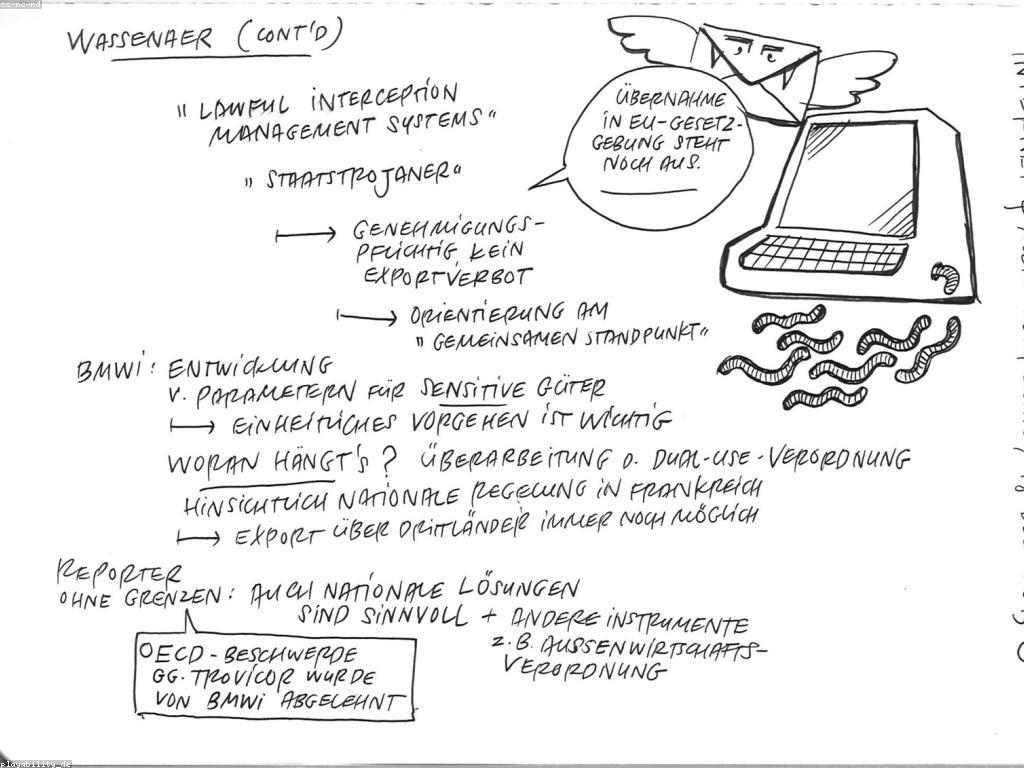 cc-nc-nd
WASSENAER (CONT'D)
"LAWFUL INTERCEPTION
MANAGEMENT SYSTEMS"
"STAATSTROJANER"
ÜBERNAHME
IN EU-GESETZ-
GEBUNG STEHT
NOCH AUS.
GENEHMIGUNGS-
PFLICHTIG, KEIN
EXPORTVERBOT
ORIENTIERUNG AM
"GEMEINSAMEN STANDPUNKT"
BMWi: ENTWICKLUNG
V. PARAMETERN FÜR SENSITIVE GÜTER
EINHEITLICHES VORGEHEN IST WICHTIG
WORAN HÄNGT'S? ÜBERARBEITUNG D. DUAL-USE-VERORDNUNG
HINSICHTLICH NATIONALE REGELUNG IN FRANKREICH
EXPORT ÜBER DRITTLÄNDER IMMER NOCH MÖGLICH
REPORTER
OHNE GRENZEN: AUCH NATIONALE LÖSUNGEN
SIND SINNVOLL + ANDERE INSTRUMENTE
Z.B. AUSSENWIRTSCHAFTS-
VERORDNUNG
OECD-BESCHWERDE
GG. TROVICOR WURDE
VON BMWi ABGELEHNT
playability_de